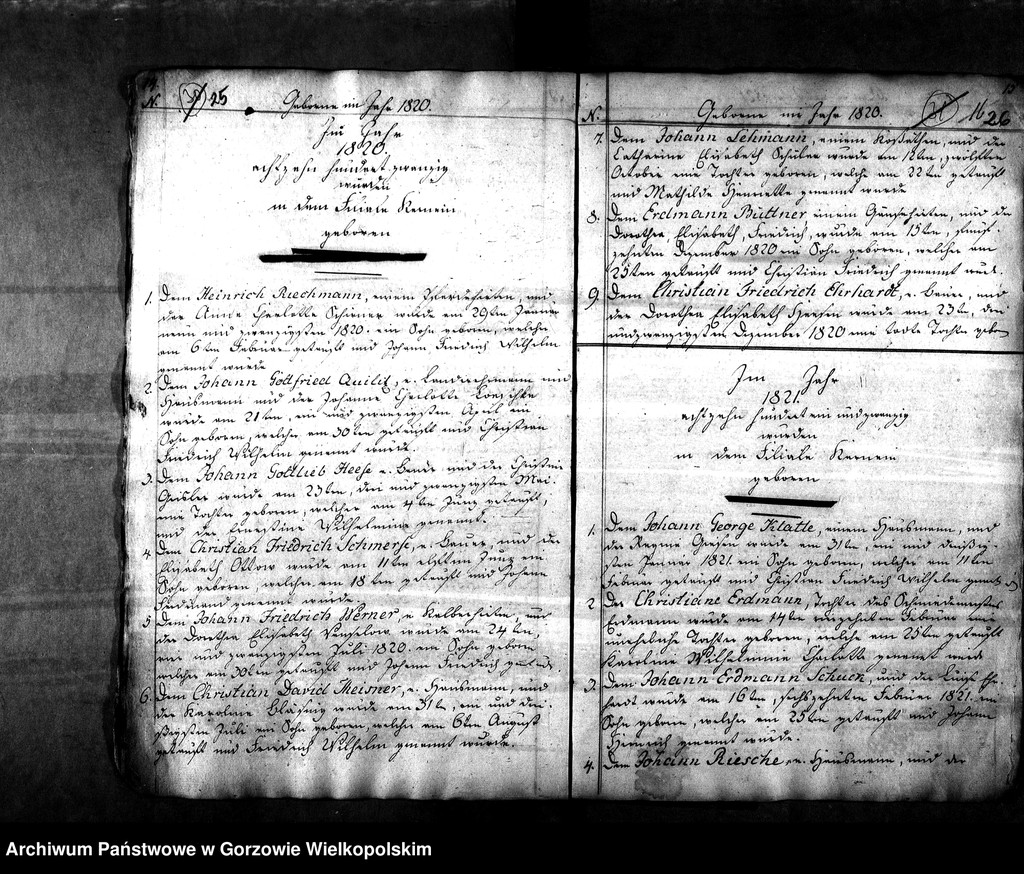 N. 25 Geborne im Jahr 1820.
Im Jahr
1820.
achtzehn hundert zwanzig
wurden
in dem Filiale Kernein
geboren
1. Dem Heinrich Riechmann, einem Pferdehirten, und
der Anne Charlotte Schirmer wurde am 29ten Januar
neun und zwanzigsten 1820. ein Sohn geboren, welcher
am 6ten Februar getauft und Johann Friedrich Wilhelm
genannt wurde
2. Dem Johann Gottfried Quilitz, e. und
Hausmann und der Johanne Charlotte
wurde am 21ten, ein und zwanzigsten April ein
Sohn geboren, welcher am 30ten getauft und Christian
Friedrich Wilhelm genannt wurde.
3. Dem Johann Gottlieb Heese e. Bauer und der Christine
Geisler wurde am 23ten, drei und zwanzigsten Mai
eine Tochter geboren, welche am 4ten Juny getauft,
und der Ernestine Wilhelmine genannt.
4. Dem Christian Friedrich Schmerse, e. Bauer, und der
Elisabeth Ottow wurde am 11ten elften Juny ein
Sohn geboren, welcher am 18ten getauft und Johann
Ferdinand genannt wurde.
5. Dem Johann Friedrich Werner, e. Kälberhirten, und
der Dorothee Elisabeth wurde am 24ten,
vier und zwanzigsten Juli 1820. ein Sohn geboren
welcher am 30ten getauft und Johann Friedrich
6. Dem Christian David Meisner, e. Hausmann, und
der Karoline wurde am 31ten, ein und drei-
ßigsten Juli ein Sohn geboren, welcher am 6ten August
getauft und Friedrich Wilhelm genannt wurde.
N. Geborne im Jahr 1820. 16 26
7. Dem Johann Lehmann, einem Kossäthen, und der
Catharine Elisabeth Schüler wurde am 12ten, zwölften
Octobr eine Tochter geboren, welche am 22ten getauft
und Mathilde Henriette genannt wurde
8. Dem Erdmann Büttner, einem Gänsehirten, und der
Dorothee, Elisabeth, Friedrich, wurde am 15ten, funf-
zehnten Dezember 1820 ein Sohn geboren, welcher am
25ten getauft und Christian Friedrich genannt wurde.
9. Dem Christian Friedrich Ehrhardt, e. Bauer, und
der Dorothee Elisabeth wurde am 23ten, drei
undzwanzigsten Dezember 1820 eine todte Tochter gebo
Im Jahr
1821.
achtzehn hundert ein und zwanzig
wurden
in dem Filiale Kernein
geboren
1. Dem Johann George Klatte, einem Hausmann, und
der Regine wurde am 31ten, ein und dreißig-
sten Januar 1821. ein Sohn geboren, welcher am 11ten
Februar getauft und Christian Friedrich Wilhelm
2 Der Christiane Erdmann, Tochter des Schmiedemeisters
Erdmann wurde am 14ten vierzehnten Februar eine
uneheliche Tochter geboren, welche am 25ten getauft
Karoline Wilhelmine Charlotte genannt wurde
3. Dem Johann Erdmann Schuen, und der
wurde am 16ten, sechszehnten Februar 1821. ein
Sohn geboren, welcher am 25ten getauft und Johann
Heinrich genannt wurde.
4. Dem Johann Riesche, e. Hausmann, und der
Archiwum Państwowe w Gorzowie Wielkopolskim